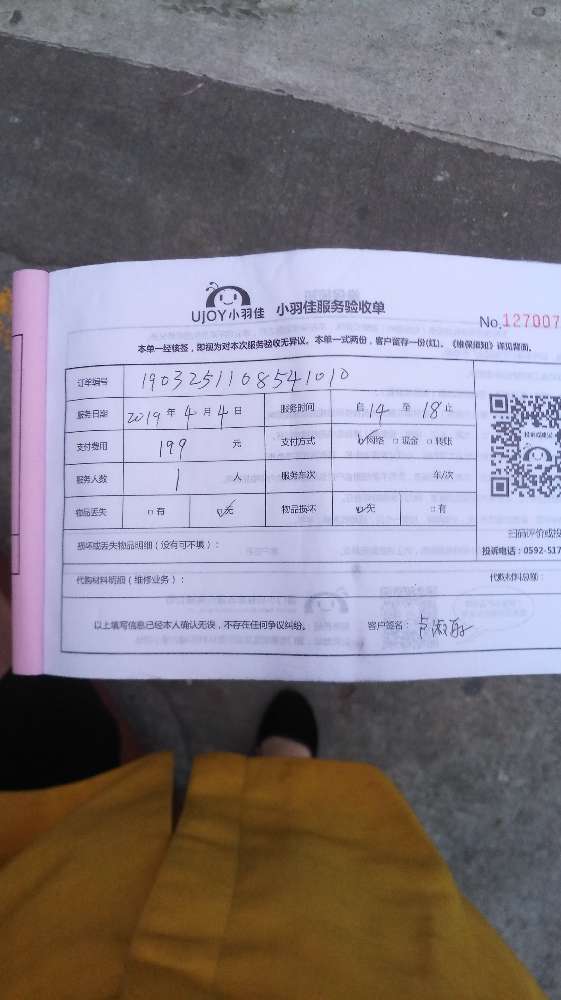 UJOY小羽佳 小羽佳服务验收单
No.127007
本单一经核签，即视为对本次服务验收无异议。本单一式两份，客户留存一份(红)。《维保须知》详见背面。
订单编号 1903251108541010
服务日期 2019年4月4日 服务时间 自14至18止
支付费用 199元 支付方式 ☑网络 □现金 □转账
服务人数 1人 服务车次 车/次
物品丢失 □有 ☑无 物品损坏 ☑无 □有
扫码评价或投
损坏或丢失物品明细（没有可不填）：
投诉电话：0592-517
代购材料明细（维修业务）： 代购材料总额：
以上填写信息已经本人确认无误，不存在任何争议纠纷。 客户签名：